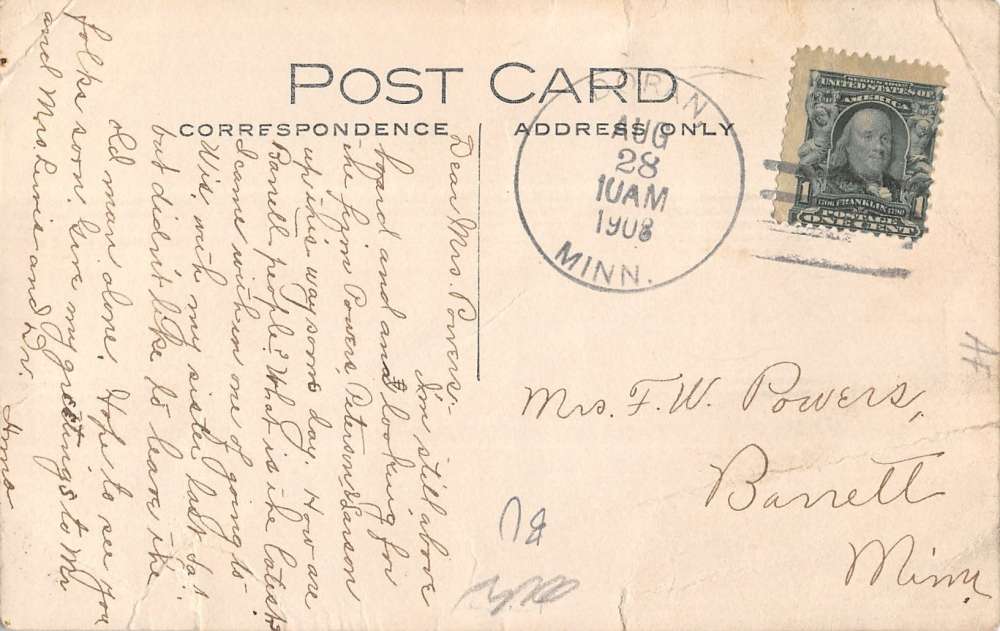 POST CARD
CORRESPONDENCE
ADDRESS ONLY
DORAN,
AUG
28
10AM
1908
MINN.
SERIES 1902
UNITED STATES OF
AMERICA
1706 FRANKLIN 1790
POSTAGE
1 ONE CENT 1
Mrs. F. W. Powers,
Barrett
Minn.
Dear Mrs. Powers:-
I'm still above
board and and looking for
the firm Powers, Peterson & Larson
up this way some day. How are
Barrett people? What is the latest?
I came within one of going to
Wis. with my sister last Sat
but didn't like to leave the
old man alone. Hope to see you
folks soon. Give my greetings to Mr
and Mrs Lewis and Dr.
Anna